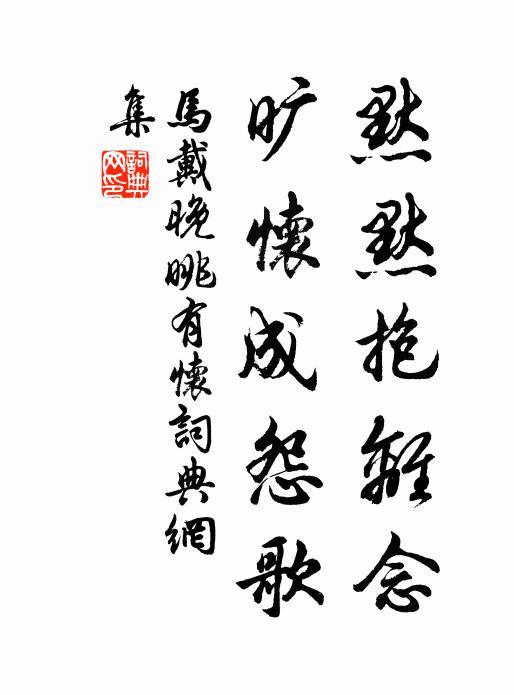 默默抱離念
旷懷成怨歌
馬戴晚眺有懷詞典網
集
詞典网印